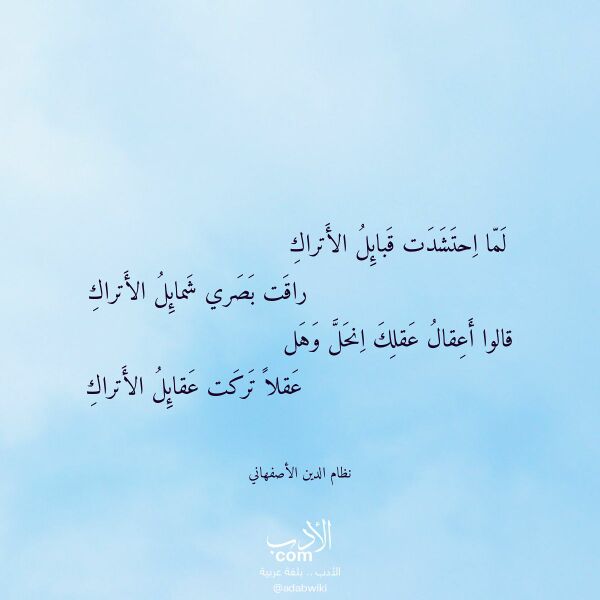 لَمّا اِحتَشَدَت قَبائِلُ الأَتراكِ
راقَت بَصَري شَمائِلُ الأَتراكِ
قالوا أَعِقالُ عَقلِكَ اِنحَلَّ وَهَل
عَقلاً تَرَكَت عَقائِلُ الأَتراكِ
نظام الدين الأصفهاني
الأدب
com
الأدب .. بلغة عربية
@adabwiki